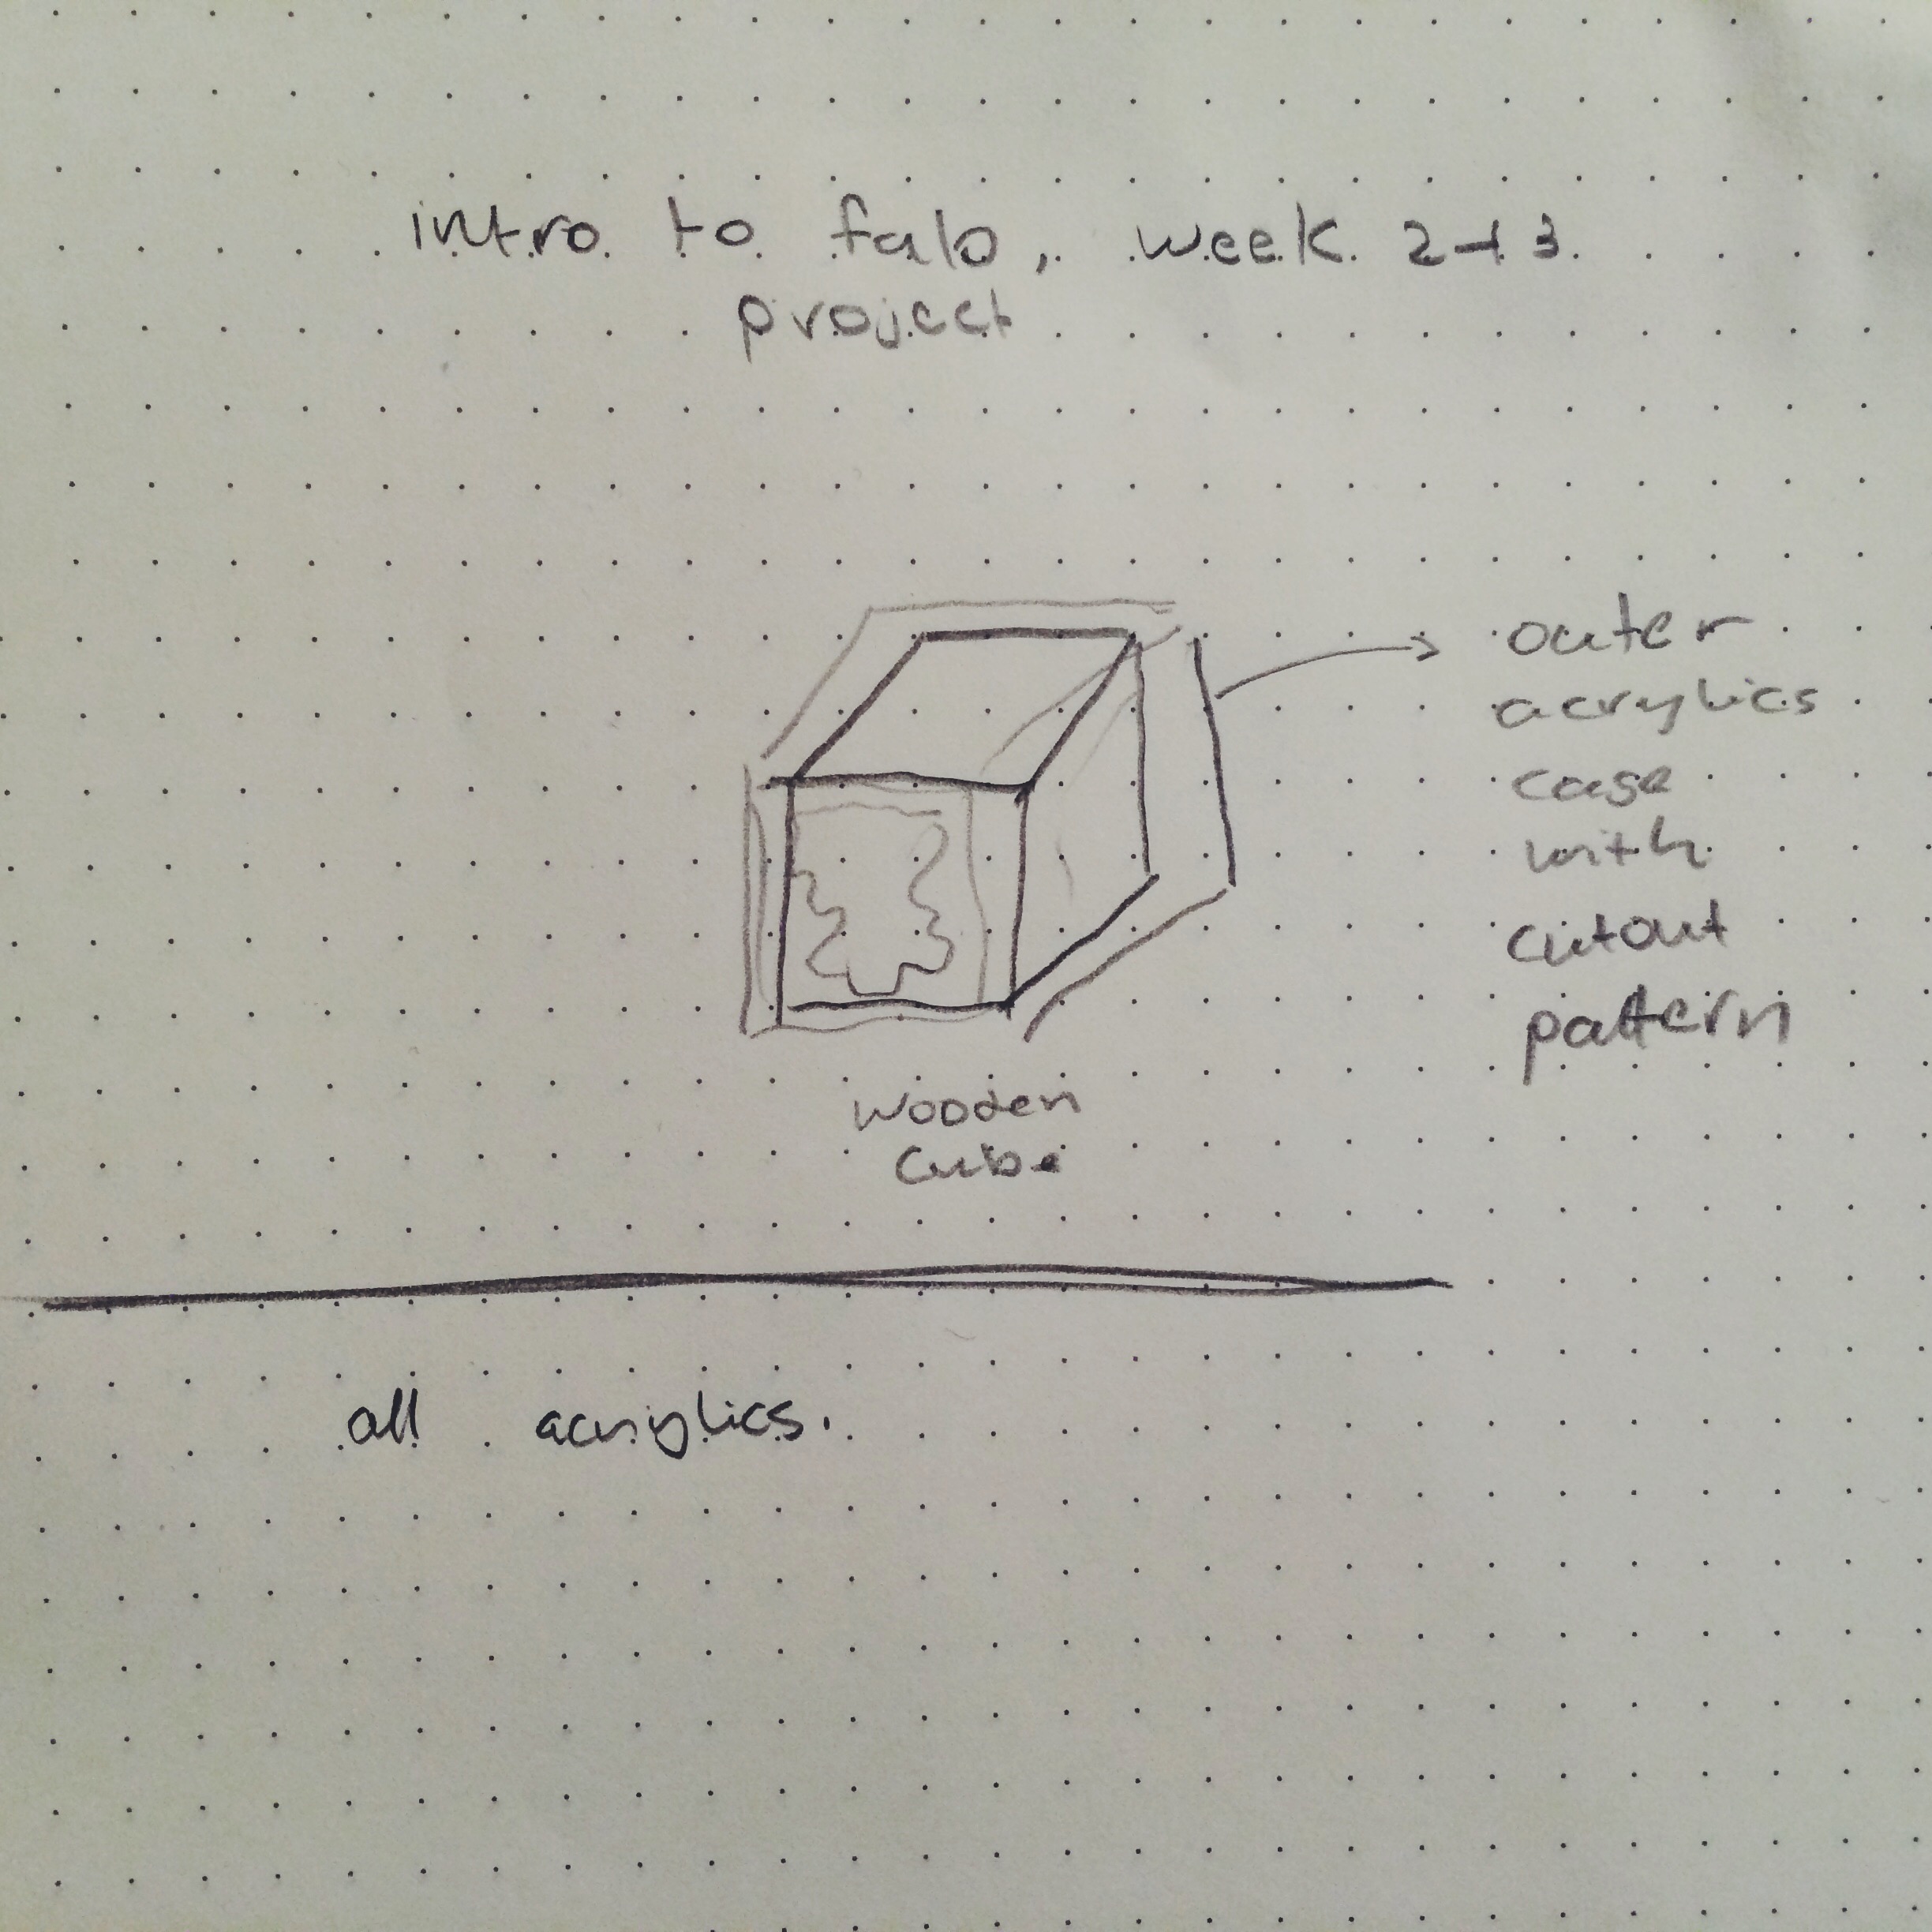 intro to fab, week 2+3
project
outer
acrylics
case
with
cutout
pattern
wooden
cube
all acrylics.